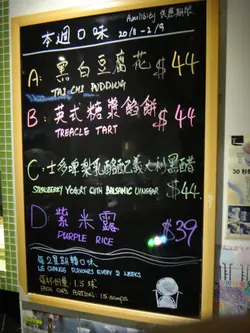 Availibity 供應期限
本週口味 20/8 - 2/9
A: 黑白豆腐花 $44
TAI CHI PUDDING
B: 英式糖漿餡餅 $44
TREACLE TART
C: 士多啤梨乳酪配意大利黑醋
STRAWBERRY YOGURT WITH BALSAMIC VINEGAR $44
D 紫米露 $39
PURPLE RICE
每2星期轉口味
WE CHANGE FLAVOURS EVERY 2 WEEKS
每杯份量: 1.5球
EACH CUP'S PORTION: 1.5 scoops